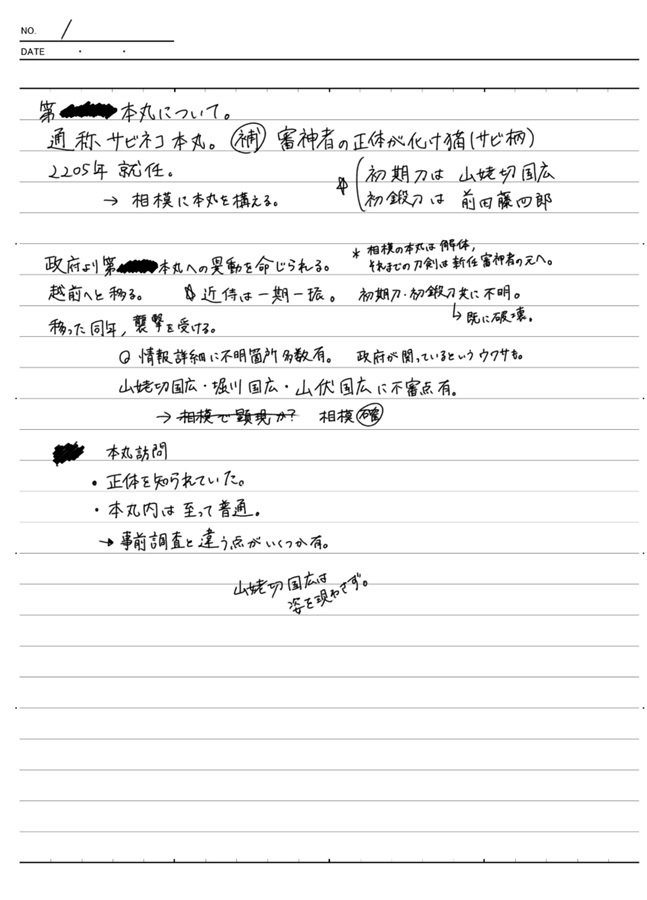 NO. 1
DATE ・ ・
第 本丸について。
通称、サビネコ本丸。 補 審神者の正体が化け猫(サビ柄)
2205年 就任。
初期刀は 山姥切国広
→ 相模に本丸を構える。
初鍛刀は 前田藤四郎
* 相模の本丸は解体,
それまでの刀剣は新任審神者の元へ。
政府より第 本丸への異動を命じられる。
越前へと移る。 近侍は一期一振。 初期刀・初鍛刀共に不明。
↳ 既に破壊。
移った同年, 襲撃を受ける。
○ 情報詳細に不明箇所多数有。 政府が関っているというウワサも。
山姥切国広・堀川国広・山伏国広に不審点有。
→ 相模で顕現か? 相模 確
本丸訪問
・ 正体を知られていた。
・ 本丸内は至って普通。
→ 事前調査と違う点がいくつか有。
山姥切国広は
姿を現わさず。